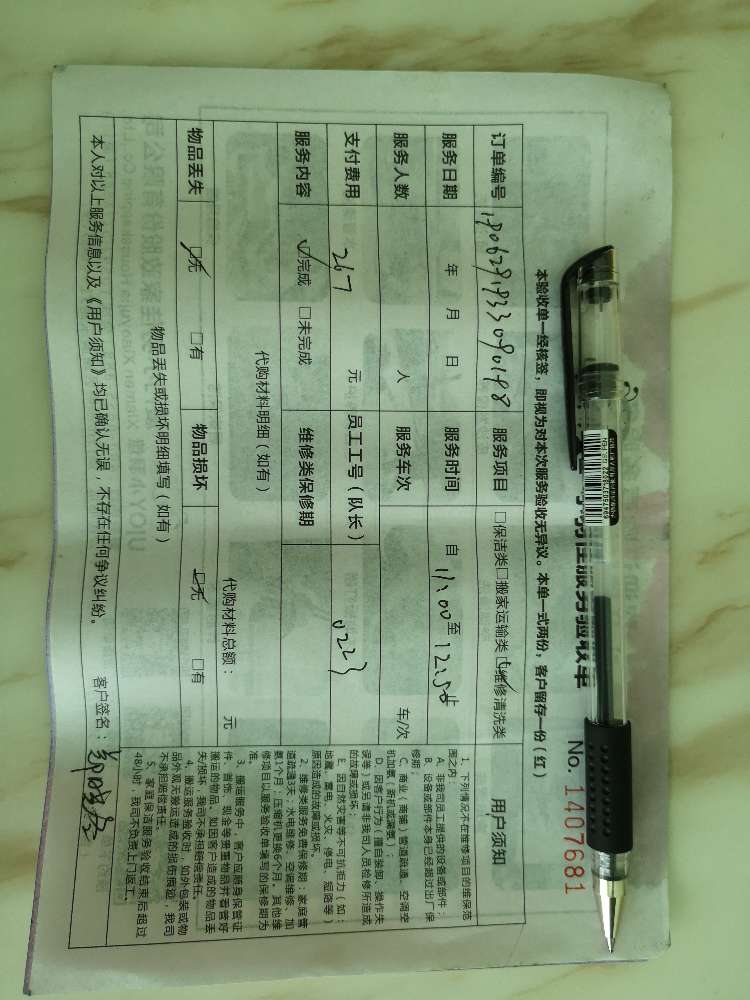 No. 1407681
本验收单一经核签，即视为对本次服务验收无异议。本单一式两份，客户留存一份（红）
订单编号 服务项目 □保洁类□搬家运输类☑维修清洗类 用户须知
服务日期 年 月 日 服务时间 自 11:00 至
服务人数 人 服务车次 车/次
支付费用 267 元 员工工号（队长） 0223
服务内容 ☑完成 □未完成 维修类保修期
代购材料明细（如有） 代购材料总额： 元
物品丢失 ☑无 □有 物品损坏 ☑无 □有
物品丢失或损坏明细填写（如有）
本人对以上服务信息以及《用户须知》均已确认无误，不存在任何争议纠纷。 客户签名：
1、下列情况不在维修项目的维保范
围之内：
A、非我司员工提供的设备或部件；
B、设备或部件本身已经超过出厂保
修期；
C、商业（商铺）管道疏通、空调空
机加氟（新机或漏氟）；
D、因客户行为（擅自装卸、操作失
误等）或另请非我司人员检修所造成
的故障或损坏；
E、因自然灾害等不可抗拒力（如：
地震、雷电、火灾、停电、短路等）
原因造成的故障或损坏。
2、维修类服务免费保修期：家庭管
道疏通3天；水电维修、空调维修、加
氨1个月；压缩机更换6个月。其他维
修项目以服务验收单填写的保修期为
准。
3、搬运服务中，客户应随身保管证
件、首饰、现金等贵重物品并看管好
搬运的物品、如因客户造成的物品丢
失/损坏，我司不承担赔偿责任。
4、搬运服务验收时，如外包装或物
品外观无搬运造成的损伤痕迹，我司
不承担赔偿责任。
5、家庭保洁服务验收结束后超过
48小时，我司不负责上门返工。